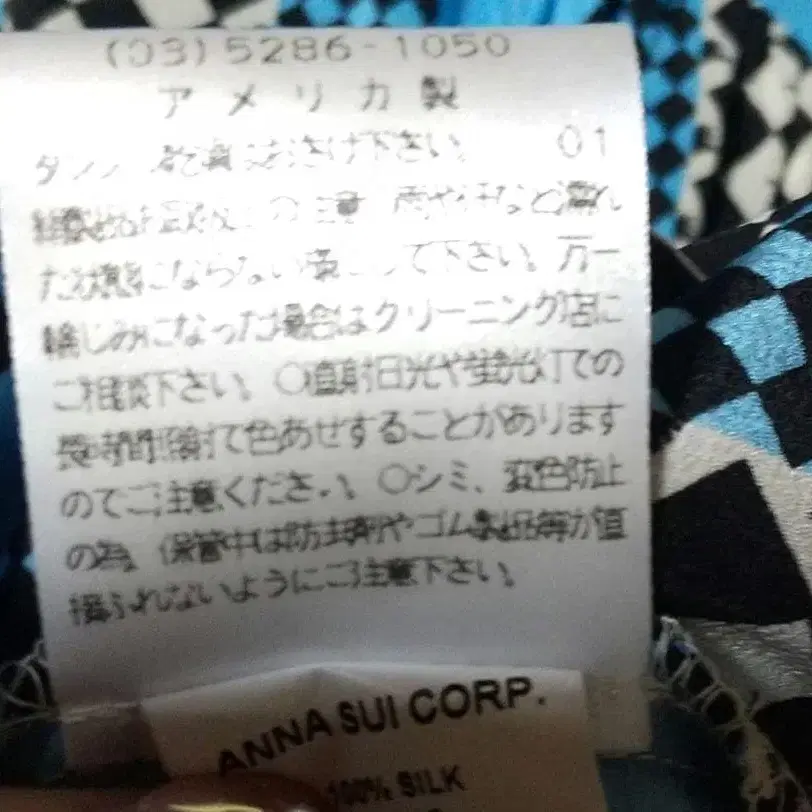 (03)5286-1050
アメリカ製
タンブル乾燥はお避け下さい。 01
絹製品お取扱いの注意 雨や汗など濡れ
た状態にならない様にして下さい。万一
輪じみになった場合はクリーニング店に
ご相談下さい。○直射日光や蛍光灯での
長時間照射で色あせすることがあります
のでご注意ください。○シミ、変色防止
の為、保管中は防虫剤やゴム製品等が直
接ふれないようにご注意下さい。
ANNA SUI CORP.
100% SILK